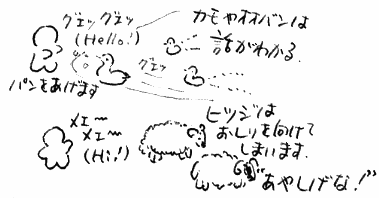 グェッグェッ
(Hello!)
カモやオオバンは
話がわかる.
グェッ
パンをあげます
メェ〜
メェ〜
(Hi!)
ヒツジは
おしりを向けて
しまいます.
"あやしげな!"